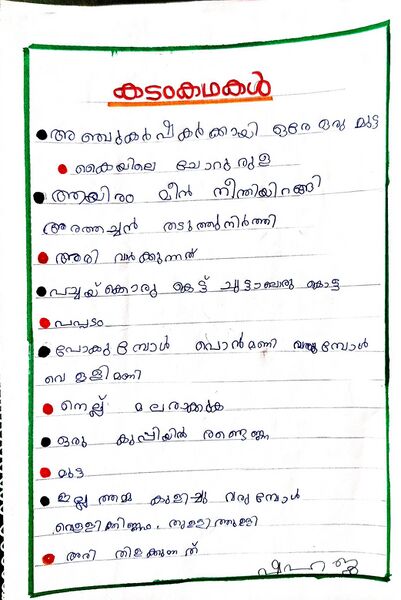 കടംകഥകൾ
അഞ്ചുകർഷകർക്കായി ഒരേ ഒരു മുട്ട
കൈയിലെ ചോറുരുള
ആയിരം മീൻ നീന്തിയിറങ്ങി
അരത്തച്ചൻ തടുത്തുനിർത്തി
അരി വാർക്കുന്നത്
പച്ചയ്ക്കൊരു കെട്ട് ചുട്ടാലൊരു കൊട്ട
പപ്പടം
പോകുമ്പോൾ പൊൻമണി വരുമ്പോൾ
വെള്ളിമണി
നെല്ല് മലരാകുക
ഒരു കുപ്പിയിൽ രണ്ടെണ്ണ
മുട്ട
ഇല്ലത്തമ്മ കുളിച്ചു വരുമ്പോൾ
വെള്ളിക്കിണ്ണം തുള്ളിത്തുള്ളി
അരി തിളക്കുന്നത്